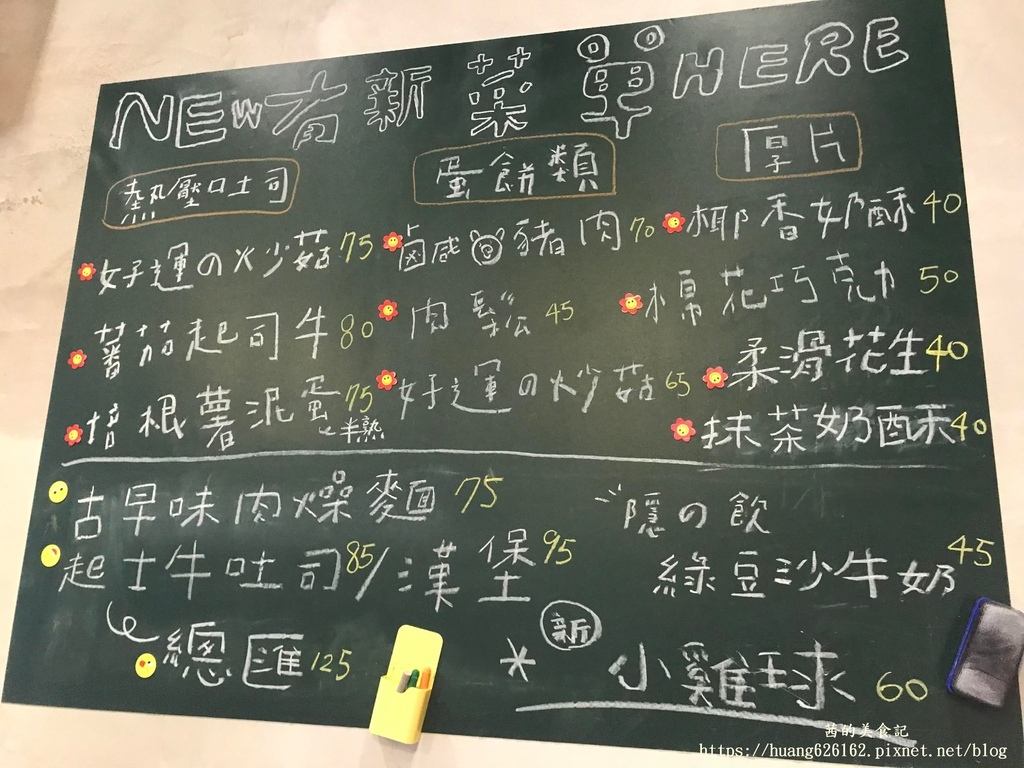 NEW有新菜單HERE
熱壓吐司
好運の炒菇 75
蕃茄起司牛 80
培根薯泥蛋 75
半熟
蛋餅類
鹵咸豬肉 70
肉鬆 45
好運の炒菇 65
厚片
椰香奶酥 40
棉花巧克力 50
柔滑花生 40
抹茶奶酥 40
古早味肉燥麵 75
起士牛吐司 85/漢堡 95
總匯 125
隱の飲
綠豆沙牛奶 45
* 新 小雞球 60
茜的美食記
https://huang626162.pixnet.net/blog